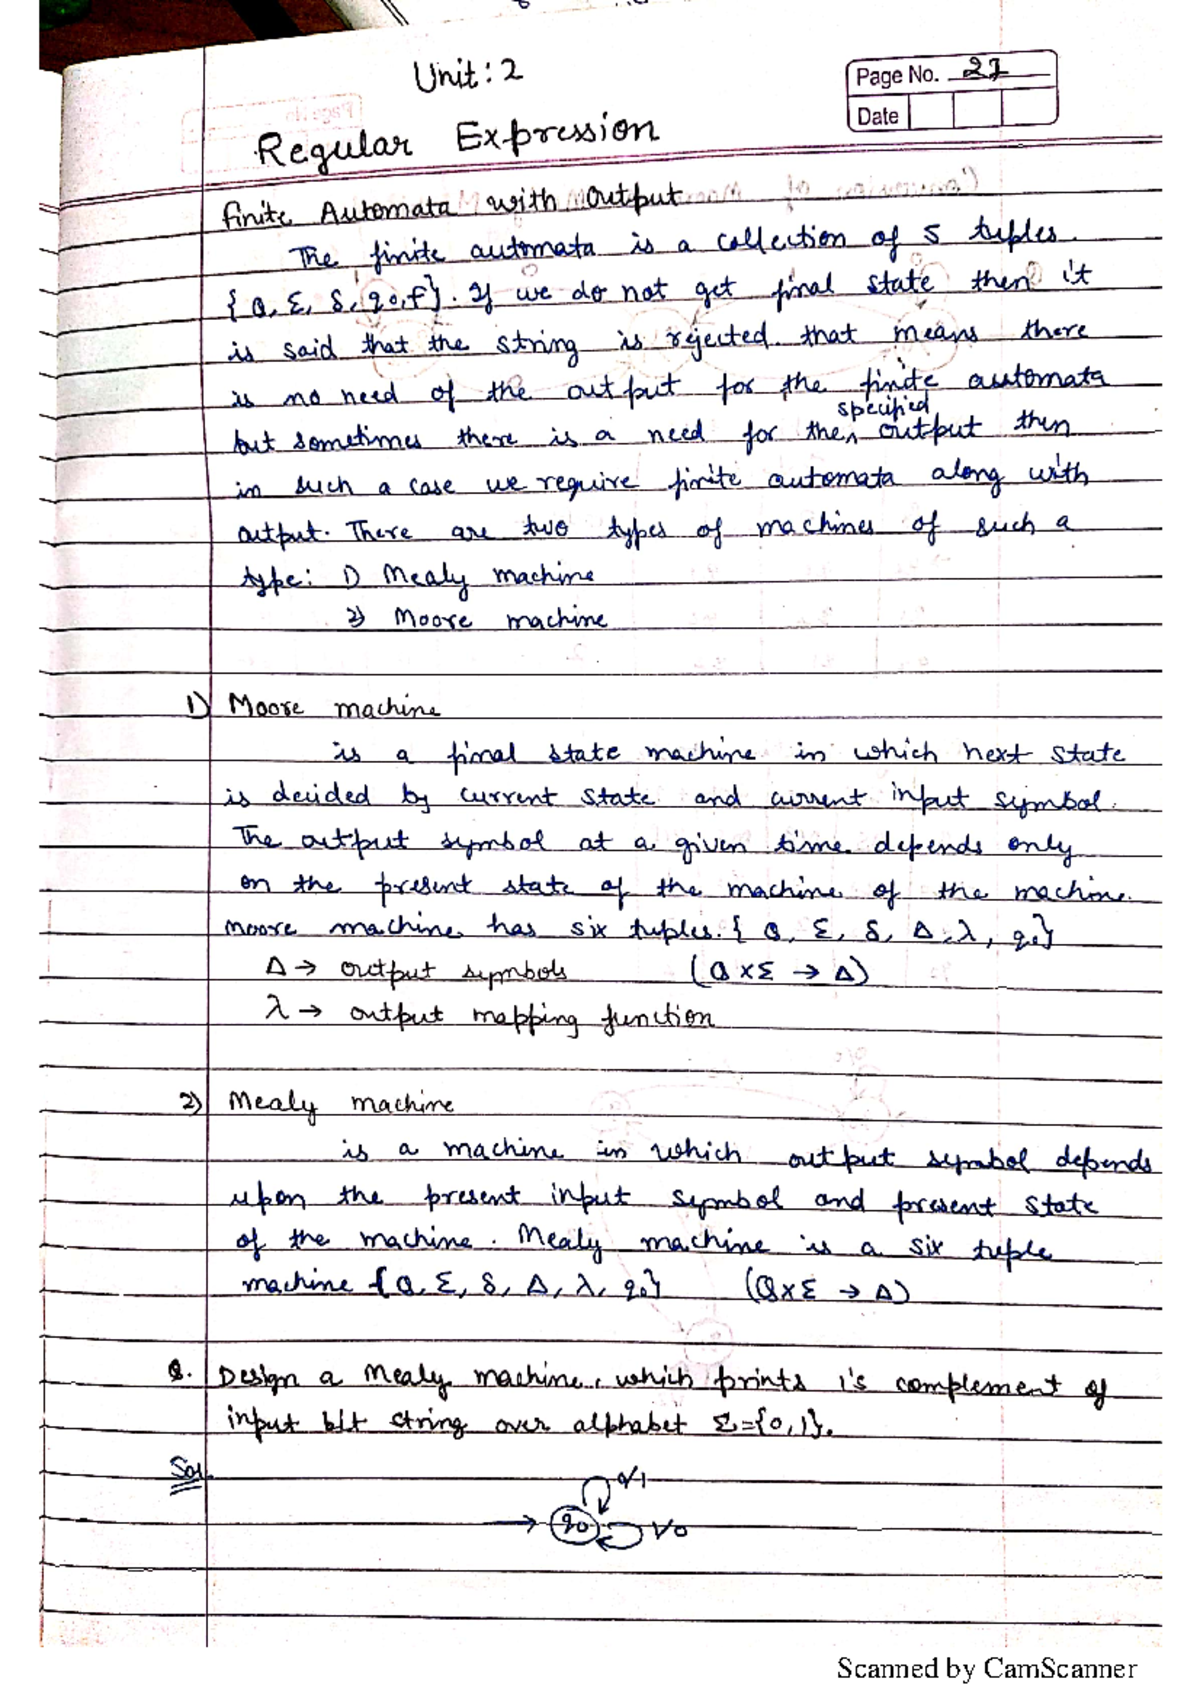 Unit: 2
Page No. 21
Date
Regular Expression
finite Automata with output
The finite automata is a collection of 5 tuples.
{Q, Σ, δ, q0, F}. If we do not get final state then it
is said that the string is rejected that means there
is no need of the output for the finite automata
specified
but sometimes there is a need for the output then
in such a case we require finite automata along with
output. There are two types of machines of such a
type: 1) Mealy machine
2) Moore machine
1) Moore machine
is a final state machine in which next state
is decided by current state and current input symbol.
The output symbol at a given time depends only
on the present state of the machine of the machine.
Moore machine has six tuples. { Q, Σ, δ, Δ, λ, q0}
Δ → output symbols (Q × Σ → Δ)
λ → output mapping function
2) Mealy machine
is a machine in which output symbol depends
upon the present input symbol and present state
of the machine. Mealy machine is a six tuple
machine {Q, Σ, δ, Δ, λ, q0} (Q×Σ → Δ)
Q. Design a Mealy machine, which prints 1's complement of
input bit string over alphabet Σ={0,1}.
Sol.
0/1
q0 1/0
Scanned by CamScanner